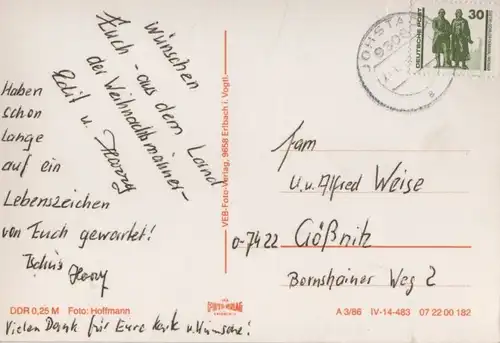 wünschen
Euch - aus dem Land
der Weihnachtsmänner-
Edit u. Harry
Haben
schon
lange
auf ein
Lebenszeichen
von Euch gewartet!
Tschüs Harry
Vielen Dank für Eure Karte u. Wünsche!
DDR 0,25 M Foto: Hoffmann
VEB-Foto-Verlag, 9658 Erlbach i. Vogtl.
FOTO-VERLAG
JOHSTA
DEUTSCHE POST
30
Fam
U. u. Alfred Weise
o-7422 Gößnitz
Bornshainer Weg 2
A 3/86 IV-14-483 07 22 00 182